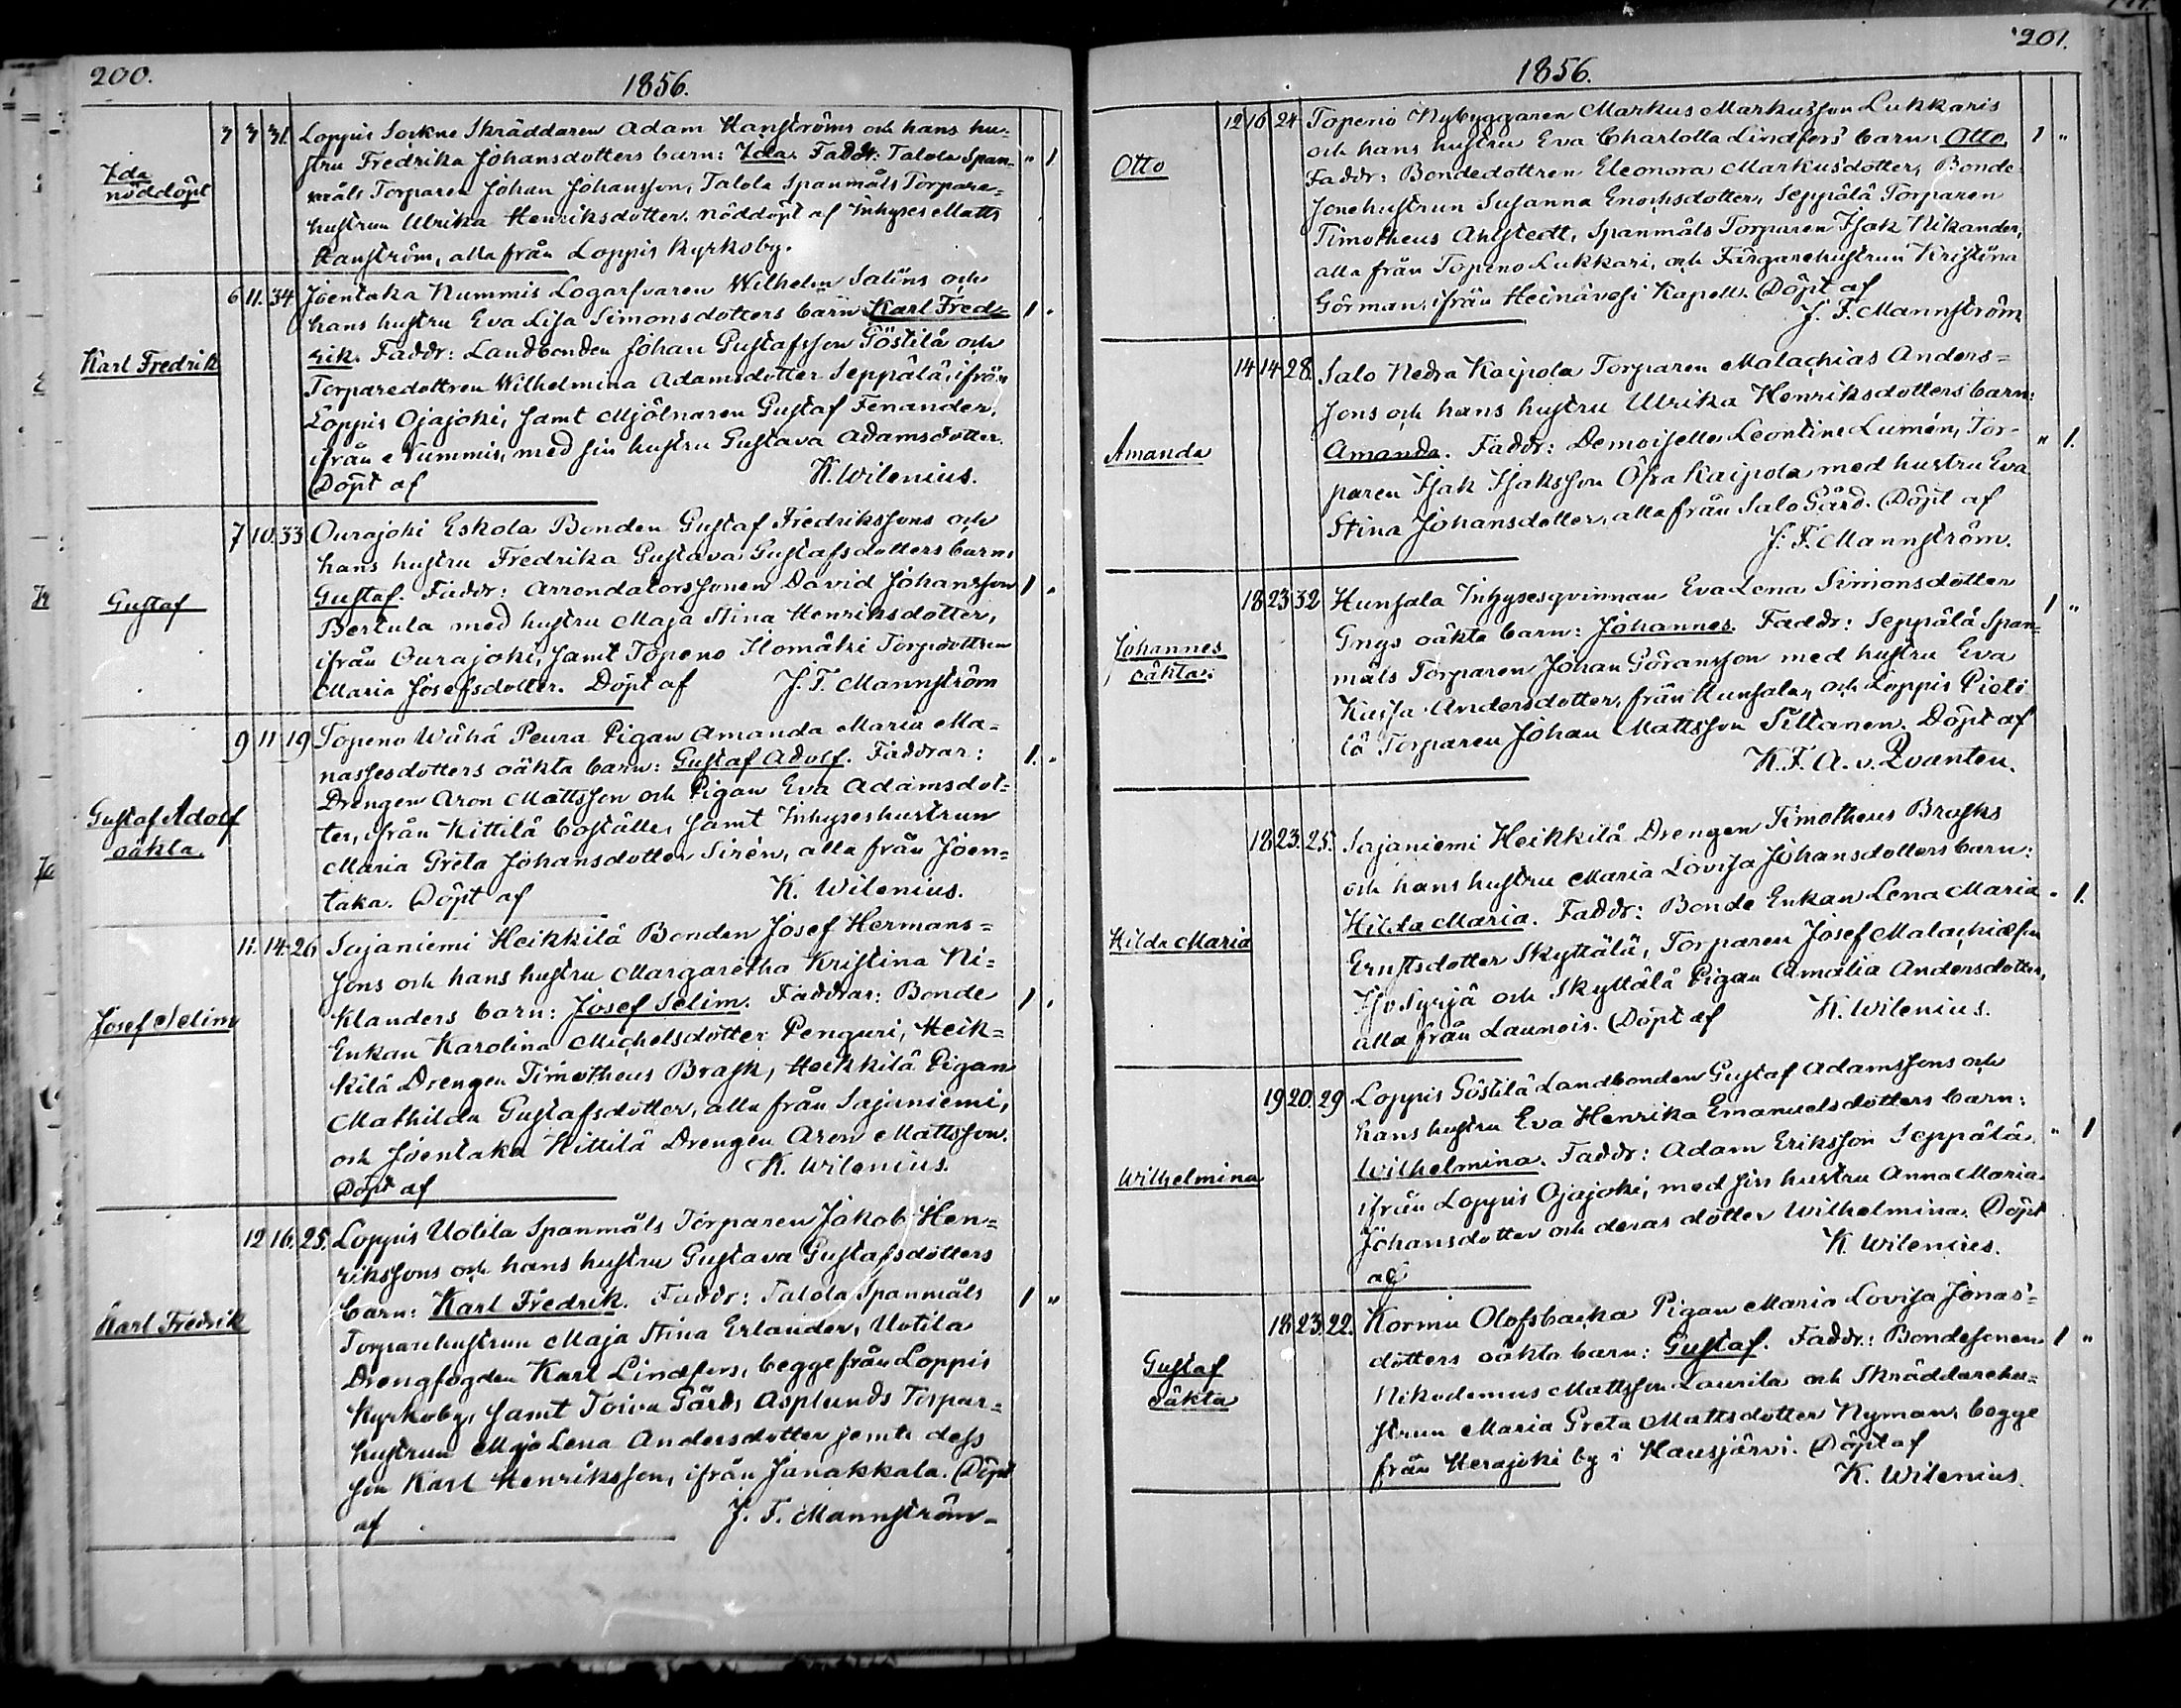 200.
1856.
Ida
nöddöpt
7 7 31. Loppis Sockne Skräddaren Adam Hanströms och hans hu-
stru Fredrika Johansdotters barn: Ida. Faddr: Talola Span- " 1
måls Torparen Johan Johansson, Talola Spanmåls Torpare-
hustrun Ulrika Henriksdotter. nöddöpt af Inhyses Matts
Hanström, alla från Loppis Kyrkoby.
Karl Fredrik
6 11. 34 Joentaka Nummis Logarfvaren Wilhelm Saléns och
hans hustru Eva Lisa Simonsdotters barn Karl Fred- 1 "
rik. Faddr: Landbonden Johan Gustafsson Göstilä och
Torparedottren Wilhelmina Adamsdotter Seppälä, ifrån
Loppis Ojajoki, samt Mjölnaren Gustaf Fenander,
ifrån Nummis, med sin hustru Gustava Adamsdotter.
Döpt af K. Wilenius.
Gustaf
7 10. 33 Ourajoki Eskola Bonden Gustaf Fredrikssons och
hans hustru Fredrika Gustava Gustafsdotters barn:
Gustaf. Faddr: Arrendatorssonen David Johansson 1 "
Bertula med hustru Maja Stina Henriksdotter,
ifrån Ourajoki, samt Topeno Ilomäki Torpdottren
Maria Josefsdotter. Döpt af J. F. Mannström
Gustaf Adolf
oäkta.
9 11 19 Topeno Wähä Peura Pigan Amanda Maria Ma-
nassesdotters oäkta barn: Gustaf Adolf. Faddrar: 1. "
Drengen Aron Mattsson och Pigan Eva Adamsdot-
ter, ifrån Kittilä boställe, samt Inhyseshustrun
Maria Greta Johansdotter Sirén, alla från Joen-
taka. Döpt af K. Wilenius.
Josef Selim
11. 14. 26 Sajaniemi Heikkilä Bonden Josef Hermans-
sons och hans hustru Margaretha Kristina Ni-
klanders barn: Josef Selim. Faddrar: Bonde 1 "
Enkan Karolina Michelsdotter Penguri, Heik-
kilä Drengen Timotheus Brask, Heikkilä Pigan
Mathilda Gustafsdotter, alla från Sajaniemi,
och Joentaka Kittilä Drengen Aron Mattsson.
Döpt af K. Wilenius.
Karl Fredrik
12 16. 25. Loppis Uotila Spanmåls Torparen Jakob Hen-
rikssons och hans hustru Gustava Gustafsdotters
barn: Karl Fredrik. Faddr: Talola Spanmåls 1 "
Torparehustrun Maja Stina Erlander, Uotila
Drengfogden Karl Lindfors, begge från Loppis
Kyrkoby, samt Toivu Gårds Asplunds Torpar-
hustrun Maja Lena Andersdotter jemte dess
son Karl Henriksson, ifrån Janakkala. Döpt
af J. F. Mannström
201.
1856.
Otto
12 16 24 Topenó Nybyggaren Markus Markusson Lukkaris
och hans hustru Eva Charlotta Lindfors' barn: Otto. 1 "
Faddr: Bondedottren Eleonora Markusdotter, Bonde-
sonehustrun Susanna Enochsdotter, Seppälä Torparen
Timotheus Ahlstedt, Spanmåls Torparen Isak Nikander,
alla från Topeno Lukkari, och Färgarehustrun Kristina
Görman, ifrån Heinävesi Kapell. Döpt af
J. F. Mannström
Amanda
14 14 28. Salo Nedra Kaipola Torparen Malachias Anders-
sons och hans hustru Ulrika Henriksdotters barn:
Amanda. Faddr: Demoiselle Leontine Lumén, Tor- " 1.
paren Isak Isaksson Öfra Kaipola med hustru Eva
Stina Johansdotter, alla från Salo Gård. Döpt af
J. F. Mannström.
Johannes
oäkta:
18 23 32 Hunsala Inhysesqvinnan Eva Lena Simonsdotter
Gngs oäkta barn: Johannes. Faddr: Seppälä Span- 1 "
måls Torparen Johan Göransson med hustru Eva
Kaisa Andersdotter, från Hunsala, och Loppis Pieti
lä Torparen Johan Mattsson Tiltanen. Döpt af
K. F. A. v. Qvanten.
Hilda Maria
18 23. 25. Sajaniemi Heikkilä Drengen Timotheus Brasks
och hans hustru Maria Lovisa Johansdotters barn:
Hilda Maria. Faddr: Bonde Enkan Lena Maria " 1.
Ernstsdotter Skyttälä, Torparen Josef Malachiæson
Iso Syrjä och Skyttälä Pigan Amalia Andersdotter,
alla från Launois. Döpt af K. Wilenius.
Wilhelmina
19 20. 29 Loppis Göstilä Landbonden Gustaf Adamssons och
hans hustru Eva Henrika Emanuelsdotters barn:
Wilhelmina. Faddr: Adam Eriksson Seppälä " 1
ifrån Loppis Ojajoki, med sin hustru Anna Maria
Johansdotter och deras dotter Wilhelmina. Döpt
af K. Wilenius.
Gustaf
oäkta
18 23. 22. Kormu Olofsbacka Pigan Maria Lovisa Jonas-
dotters oäkta barn: Gustaf. Faddr: Bondesonen 1 "
Nikodemus Mattsson Laurila och Skräddarehu-
strun Maria Greta Mattsdotter Nyman, begge
från Herajoki by i Hausjärvi. Döpt af
K. Wilenius.